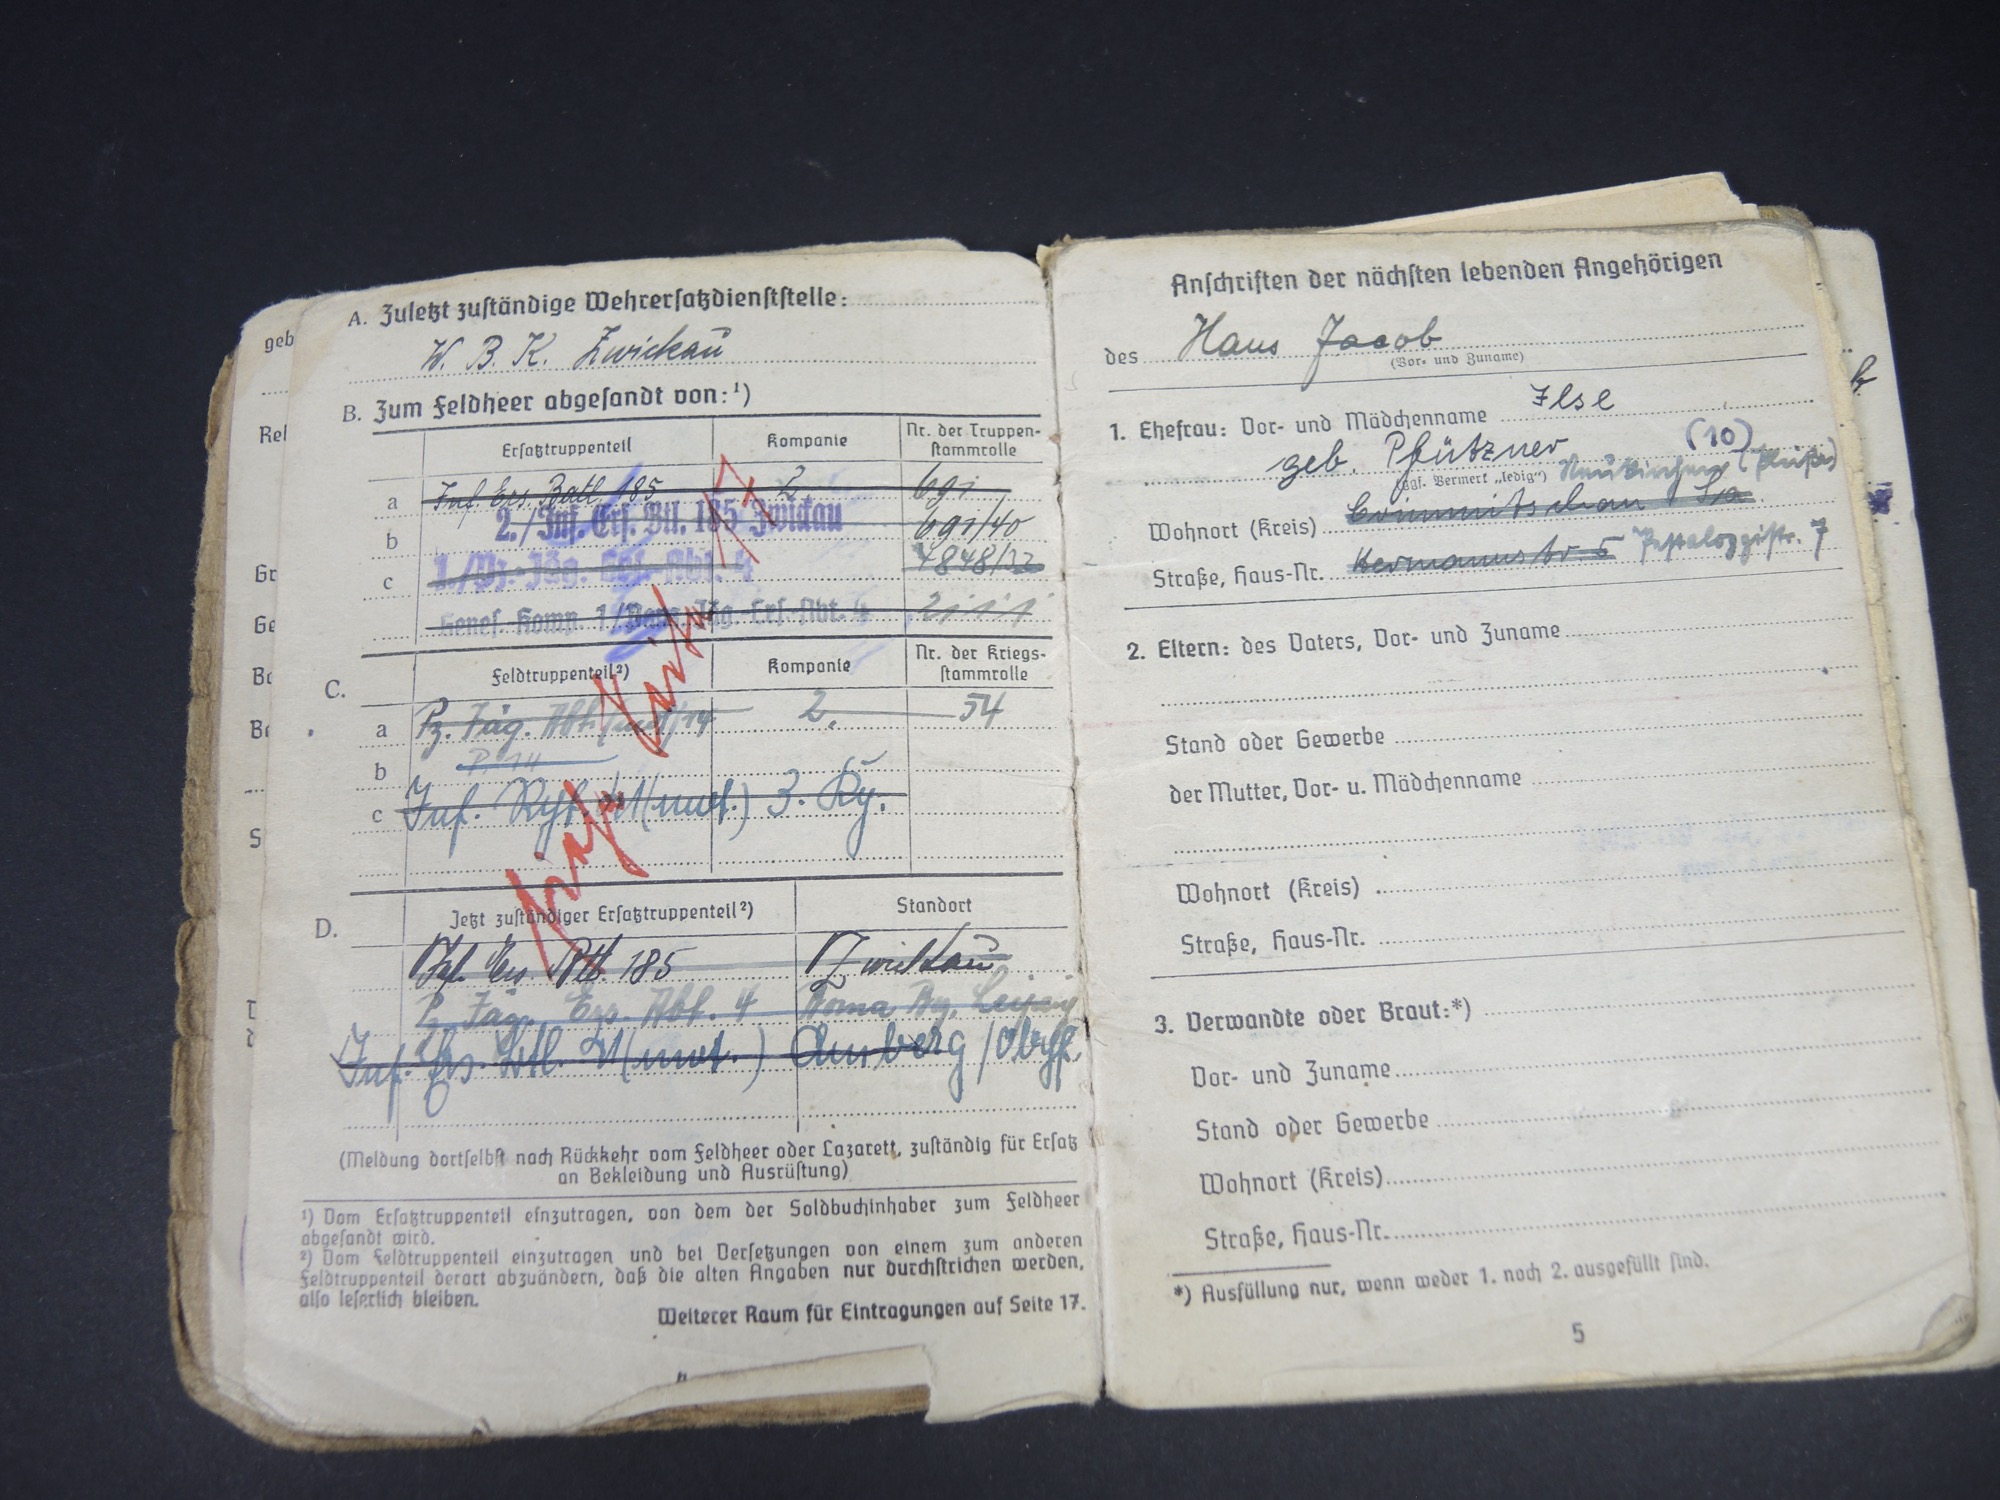 geb
Rel
Gr
Ge
Be
Be
S
A. Zuletzt zuständige Wehrersatzdienststelle:
W. B. K. Zwickau
B. Zum Feldheer abgesandt von:¹)
Ersatztruppenteil Kompanie Nr. der Truppen-
stammrolle
a Inf. Ers. Batl. 185 2
b 2./Inf. Ers. Btl. 185 Zwickau 691/40
c 1./Pz.-Jäg. Ers.-Abt. 4 4848/32
Genes.-Komp. 1/Panz.-Jäg.-Ers.-Abt. 4
C. Feldtruppenteil²) Kompanie Nr. der Kriegs-
stammrolle
a Pz. Jäg. Abt. (mot) 14 2. 54
b
c Inf. (mot.) 3.
D. Jetzt zuständiger Ersatztruppenteil²) Standort
Inf. Ers. Btl. 185 Zwickau
Pz. Jäg. Ers. Abt. 4 Borna Leipzig
Inf. Ers. Btl. (mot.)
(Meldung dortselbst nach Rückkehr vom Feldheer oder Lazarett, zuständig für Ersatz
an Bekleidung und Ausrüstung)
¹) Vom Ersatztruppenteil einzutragen, von dem der Soldbuchinhaber zum Feldheer
abgesandt wird.
²) Vom Feldtruppenteil einzutragen und bei Versetzungen von einem zum anderen
Feldtruppenteil derart abzuändern, daß die alten Angaben nur durchstrichen werden,
also leserlich bleiben.
Weiterer Raum für Eintragungen auf Seite 17.
Anschriften der nächsten lebenden Angehörigen
des Hans Jacob
(Vor- und Zuname)
1. Ehefrau: Vor- und Mädchenname Ilse
geb. Pfützner (10)
(ggf. Vermerk „ledig“) Neukirchen (Pleiße)
Wohnort (Kreis) Crimmitschau Sa
Straße, Haus-Nr. Hermannstr. 5 Pestalozzistr. 7
2. Eltern: des Vaters, Vor- und Zuname
Stand oder Gewerbe
der Mutter, Vor- u. Mädchenname
Wohnort (Kreis)
Straße, Haus-Nr.
3. Verwandte oder Braut:*)
Vor- und Zuname
Stand oder Gewerbe
Wohnort (Kreis)
Straße, Haus-Nr.
*) Ausfüllung nur, wenn weder 1. noch 2. ausgefüllt sind.
5